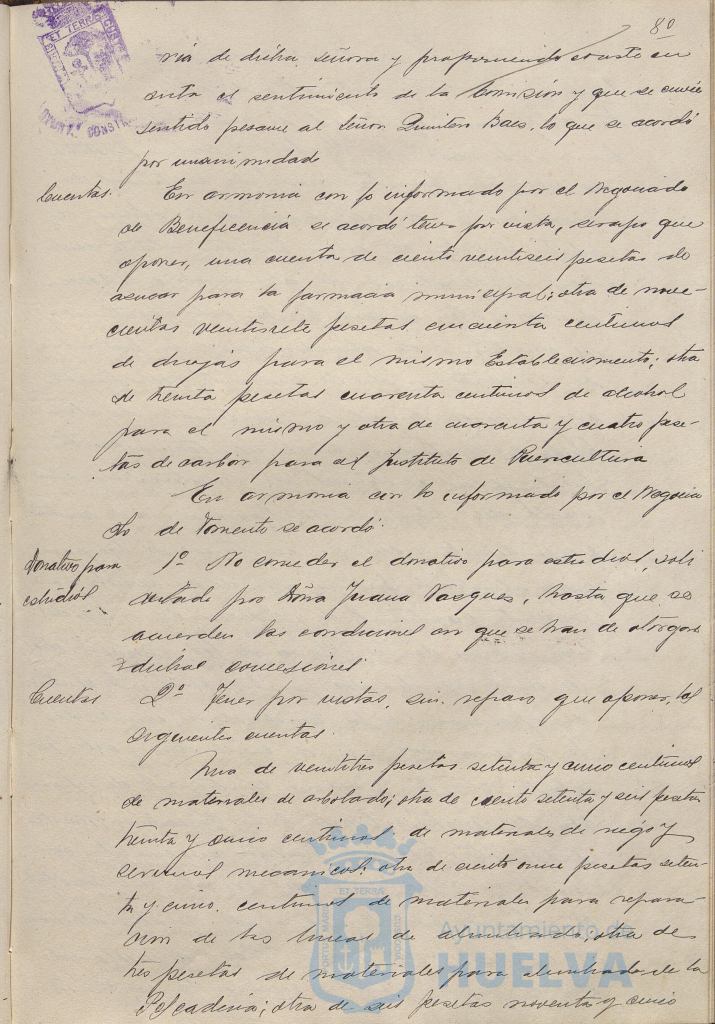 80
ria de dicha señora y proponiendo conste en
acta el sentimiento de la Comisión y que se envie
sentido pesame al Señor Quintero Baez, lo que se acordó
por unanimidad
Cuentas. En armonia con lo informado por el Negociado
de Beneficencia se acordó tener por vista, sin reparo que
oponer, una cuenta de ciento veintiseis pesetas de
azucar para la farmacia municipal; otra de nove-
cientas veintisiete pesetas cincuenta centimos
de drogas para el mismo Establecimiento; otra
de treinta pesetas cuarenta centimos de alcohol
para el mismo y otra de cuarenta y cuatro pese-
tas de carbon para el Instituto de Puericultura
En armonia con lo informado por el Negocia
do de Fomento se acordó:
Donativo para estudios 1º No conceder el donativo para estudios, soli
citado por Doña Juana Vazques, hasta que se
acuerden las condiciones en que se han de otorgar
dichas concesiones
Cuentas 2º Tener por vistas, sin reparo que oponer, las
siguientes cuentas.
Una de veintitres pesetas setenta y cinco centimos
de materiales de arbolado; otra de ciento setenta y seis pesetas
treinta y cinco centimos de materiales de riego y
servicios mecanicos; otra de ciento once pesetas seten-
ta y cinco centimos de materiales para repara-
cion de las lineas de alumbrado; otra de
tres pesetas de materiales para alumbrado de la
Pescaderia; otra de seis pesetas noventa y cinco
Ayuntamiento de
HUELVA